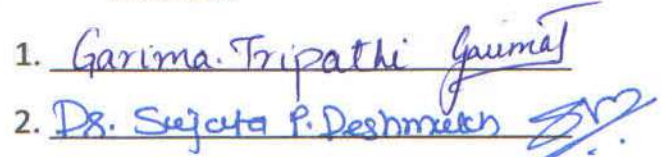 1. Garima. Tripathi GarimaT
2. Dr. Sujata P. Deshmukh